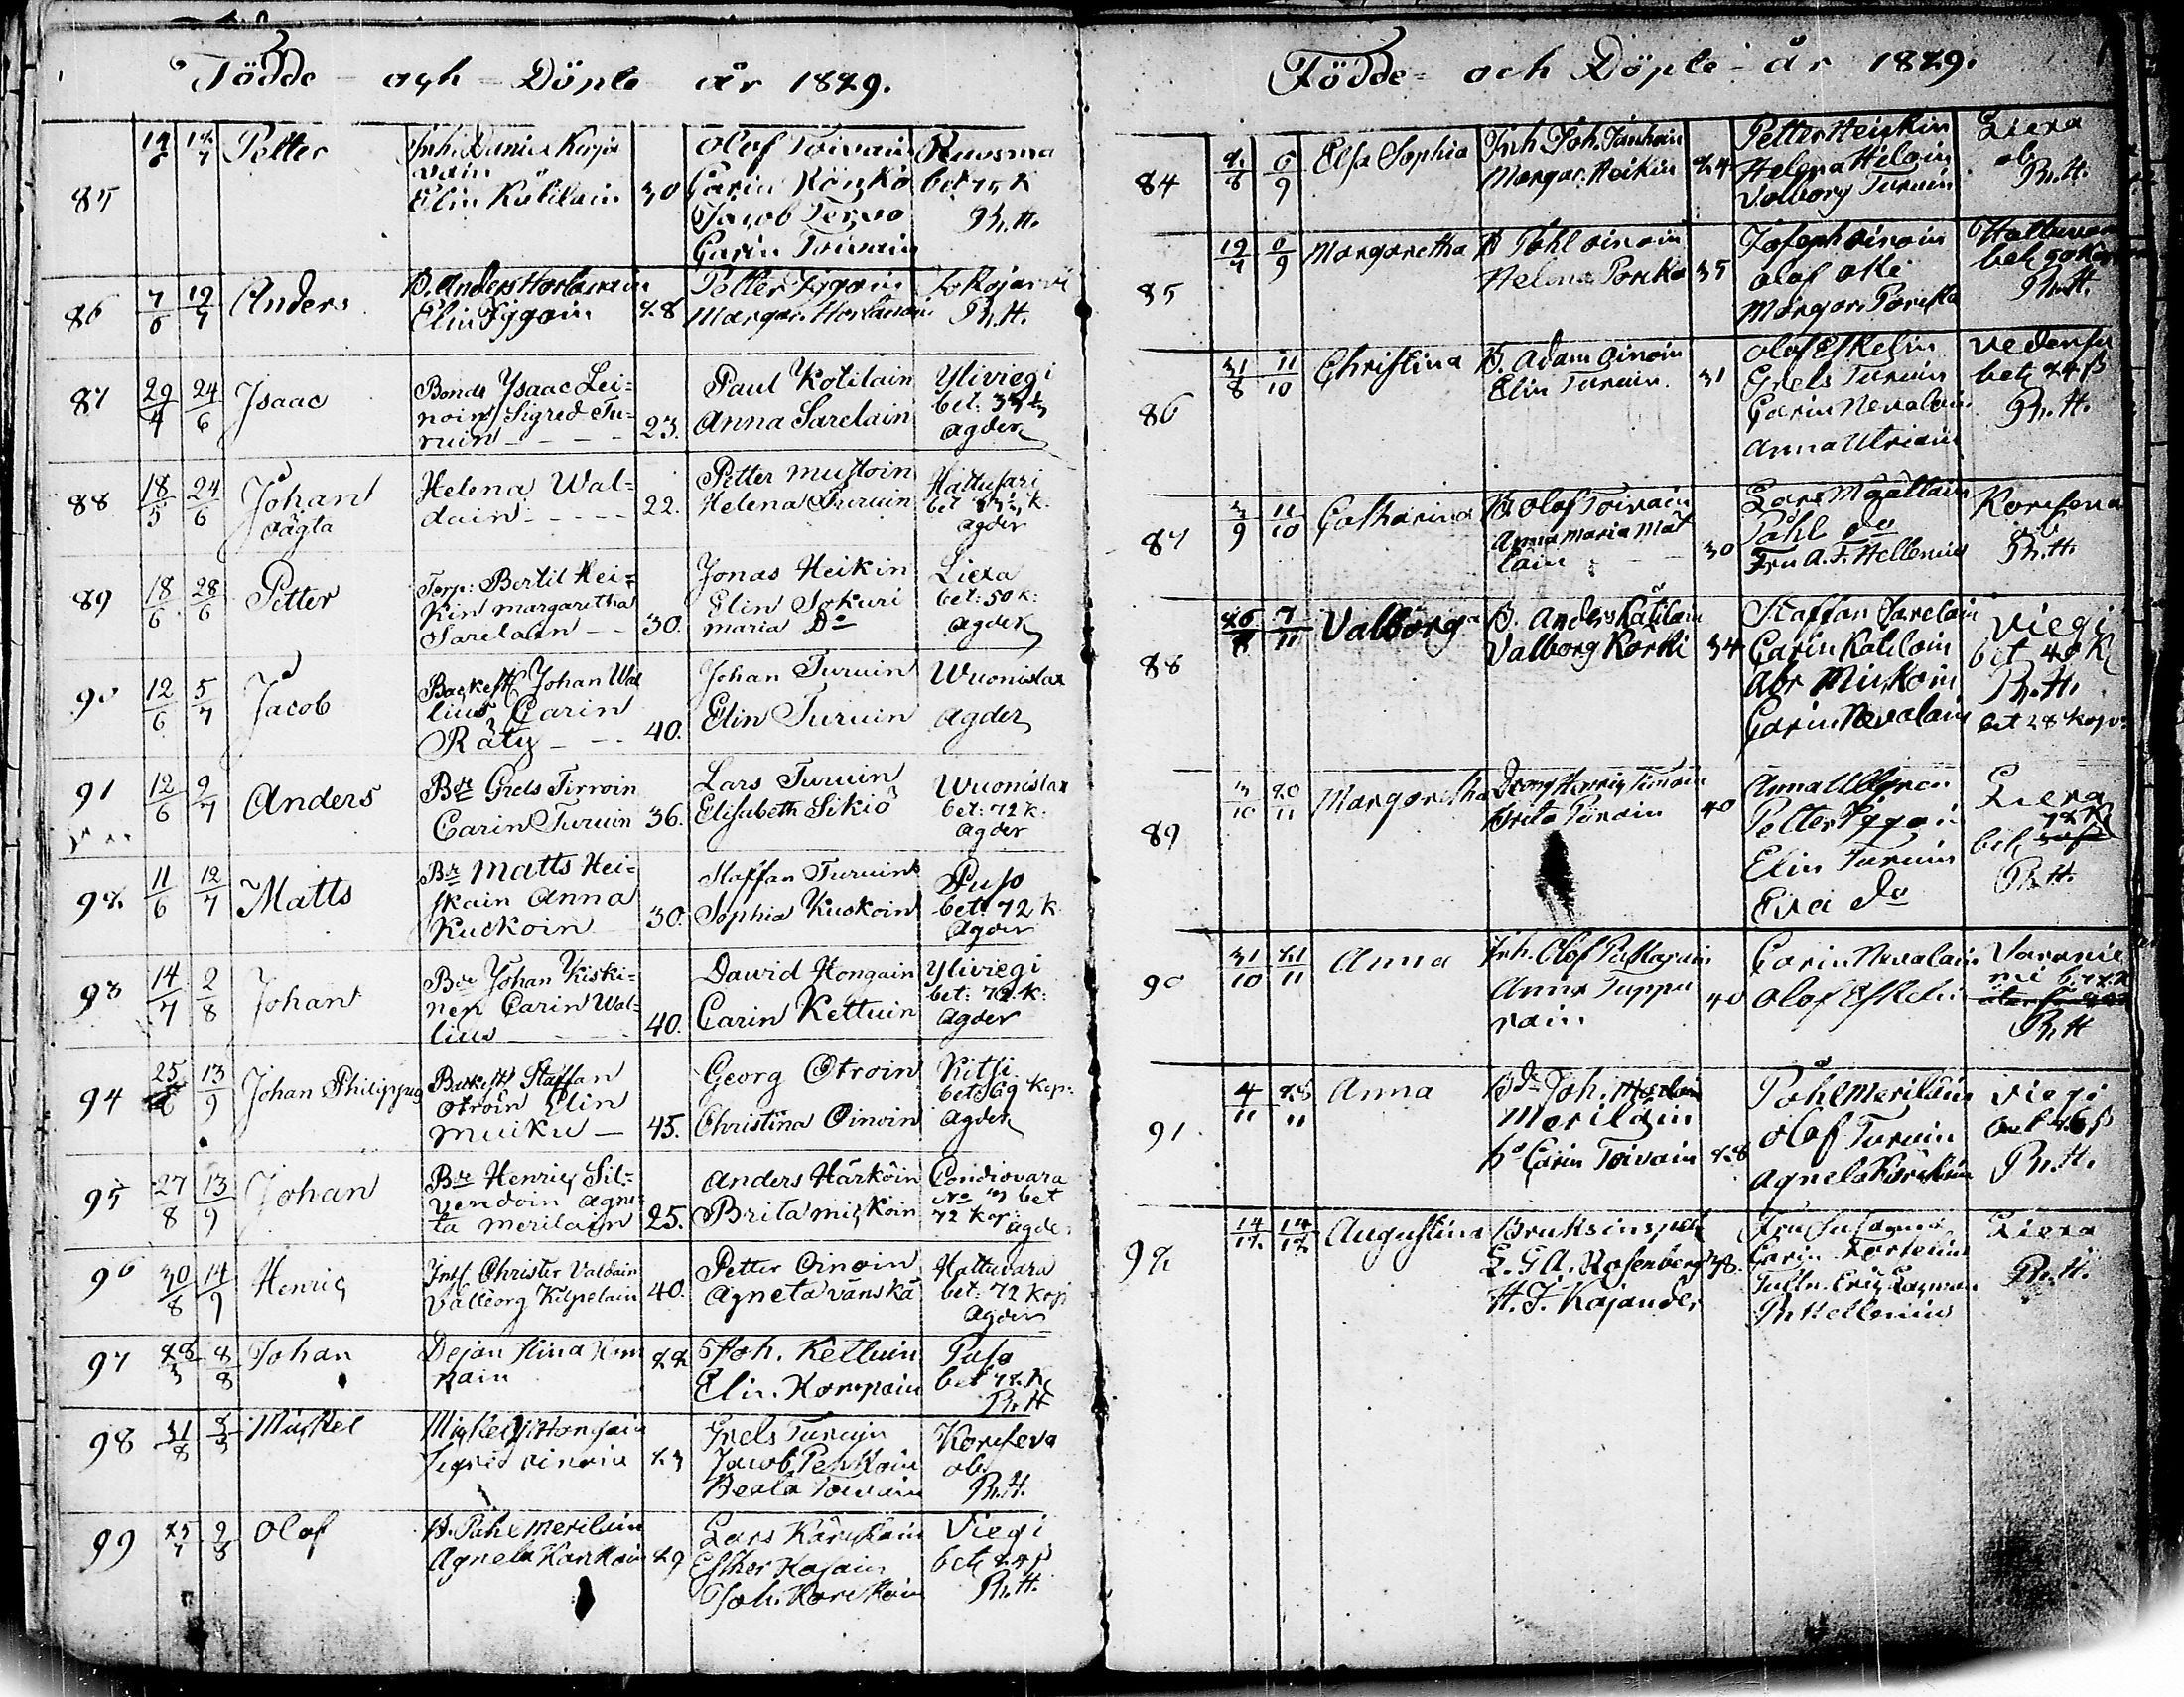 Födde och Döpte år 1829.
85 14/6 12/7 Petter Inh. Daniel Karja
vain
Elin Kälilain 30
Olof Toivain
Carin Könkö
Jacob Tervo
Carin Toivain
Ruosma
bet 75 K
Ph. H.
86 7/6 12/7 Anders B. Anders Horlanain
Elin Pygain 28
Petter Pygain
Margar. Horlanain
Jokojarvi
Ph. H.
87 29/4 24/6 Isaac Bonde Isaac Lei=
noin Sigred Tu=
ruin 23.
Paul Kotilain
Anna Sarelain
Yliviegi
bet:
agder
88 18/5 24/6 Johan
oägta
Helena Wal=
dain 22.
Petter Mustoin
Helena Turuin
Hattusari
bet
agder
89 18/6 28/6 Petter Torp: Bertil Hei=
kin Margaretha
Sarelain 30.
Jonas Heikin
Elin Sokuri
Maria Do
Liexa
bet: 50 k:
agder
90 12/6 5/7 Jacob Johan Wal
lius Carin
Räty 40.
Johan Turuin
Elin Turuin
Wuonislax
agder
91 12/6 9/7 Anders Bde Grels Sirvoin
Carin Turuin 36.
Lars Turuin
Elisabeth Sikiö
Wuonislax
bet: 72 k:
agder
92 11/6 12/7 Matts Bde Matts Hei=
skain Anna
Kuckoin 30.
Staffan Turuin
Sophia Kuckoin
Puso
bet: 72 k
agder
93 14/7 2/8 Johan Bde Johan Kiski=
nen Carin Wal=
lius 40.
David Hongain
Carin Kettuin
Yliviegi
bet: 72 k:
agder
94 25/6 13/9 Johan Philippus Staffan
Otroin Elin
Muiku 45.
Georg Otroin
Christina Oinoin
Kitsi
bet 69 kop:
agder
95 27/8 13/9 Johan Bde Henric Sil=
vendoin Agne=
ta Merilain 25.
Anders Härköin
Brita Mickoin
Condiovara
bet
72 kop:
agder
96 30/8 14/9 Henric Inh. Christer Valdain
Valborg Kilpelain 40.
Petter Oinoin
Agneta Vänskä
Hattuvara
bet: 72 kop
agder
97 28/3 8/8 Johan Dejan Stina
nain 22
Joh. Kettuin
Elin Kompain
Puso
bet 72 K
Ph. H
98 31/8 Michel Michel Hongain
Sigrid Oinoin 23
Grels Turuin
Jacob Penkoin
Beata Toivain
Koriseva
ob
Ph. H.
99 Olof B. Påhl Merilain
Agneta 29
Lars
Esther Kosain
Joh.
Viegi
bet 24 β
Ph. H.
Födde och Döpte år 1829.
84 2/8 6/9 Elsa Sophia Inh. Joh. Tanhain
Margar. Heikin 24
Petter Heiskin
Helena Hiloin
Valborg Turuin
Liexa
ob
Ph. H.
85 12/7 6/9 Margaretha B Påhl Oinoin
Helena Poricka 35
Joseph Oinoin
Olof
Margar. Poricka
Hattuvara
bet 90 kop
Ph. H.
86 31/8 11/10 Christina B. Adam Oinoin
Elin Turuin 31
Olof Eskelin
Grels Turuin
Carin Nevalain
Anna Utriain
Vedensu
bet 24 β
Ph. H.
87 3/9 11/10 Catharina B Olof Toivain
Anna Maria Mät
tain 30
Lars Määttain
Påhl do
Fru A. F. Hellenius
Koriseva
ob
Ph. H.
88 7/11 Valborg B. Anders Kätilain
Valborg Korki 34
Staffan Sarelain
Carin Kotilain
Abr Mickoin
Carin Nevalain
Viegi
bet 40 K
Ph. H.
bet 28 kop:
89 3/10 20/11 Margaretha Henric Timoin
Brita Piroin 40
Anna Ullgren
Petter Pygain
Elin Turuin
Eva do
Liexa
72 K
bet
Ph. H.
90 31/10 21/11 Anna Inh. Olof
Anna Tuppu
rain 40
Carin Nevalain
Olof Eskelin
b. 72 k
Ph. H
91 4/11 28/11 Anna Bde Joh.
Merilain
h. Carin Toivain 28
Påhl Merilain
Olof Turuin
Agneta
Viegi
bet 46 β
Ph. H.
92 14/12 14/12 Augustina Bruksinspekt
L. G. A. Rosenberg 28
H. F. Kajander
Fru Susanna
Carin
Eric Layman
Ph Hellenius
Liexa
Ph. H.